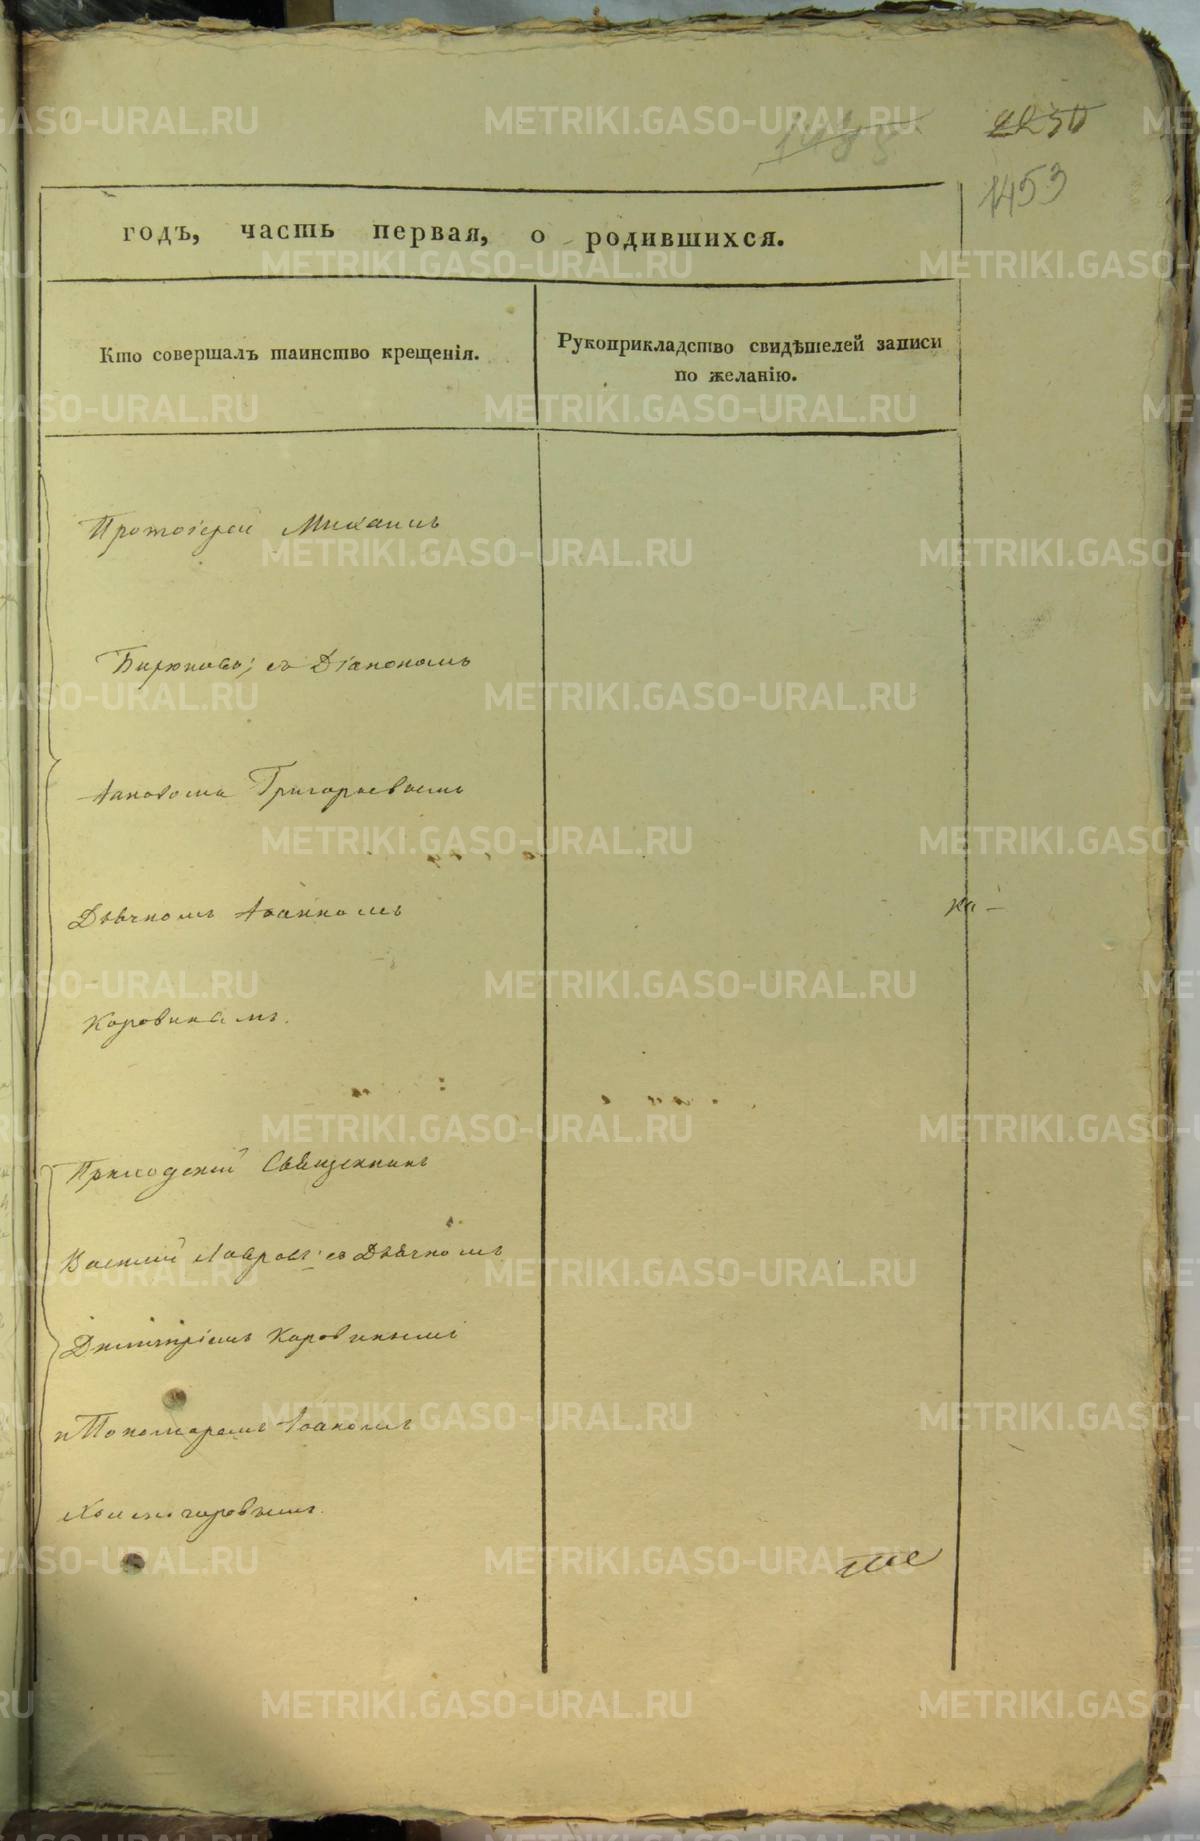 2250
1453
годъ, часть первая, о родившихся.
Кто совершалъ таинство крещенія.
Рукоприкладство свидѣтелей записи
по желанію.
Протоіерей Михаилъ
Бирюковъ; съ Діакономъ
Іаковомъ Григорьевымъ
Дьячкомъ Іоанномъ
Коровинымъ.
Приходскій Священникъ
Василій Лавровъ: съ Дьячкомъ
Димитріемъ Коровинымъ
и Пономаремъ Іоаномъ
Холмогоровымъ.
METRIKI.GASO-URAL.RU